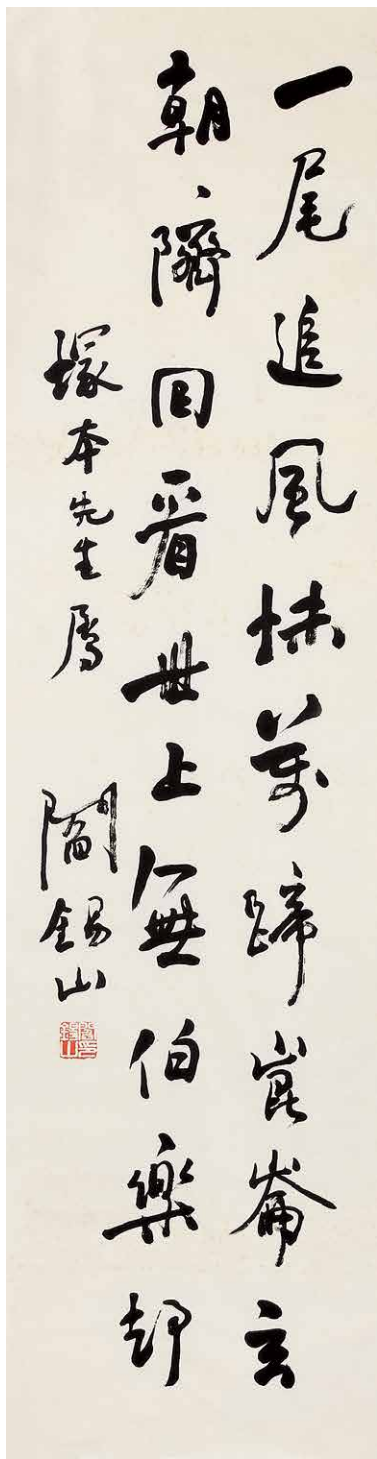 一尾追風抹萬蹄崑崙玄
朝隮回看世上無伯樂却
塚本先生屬 閻錫山
閻印錫山